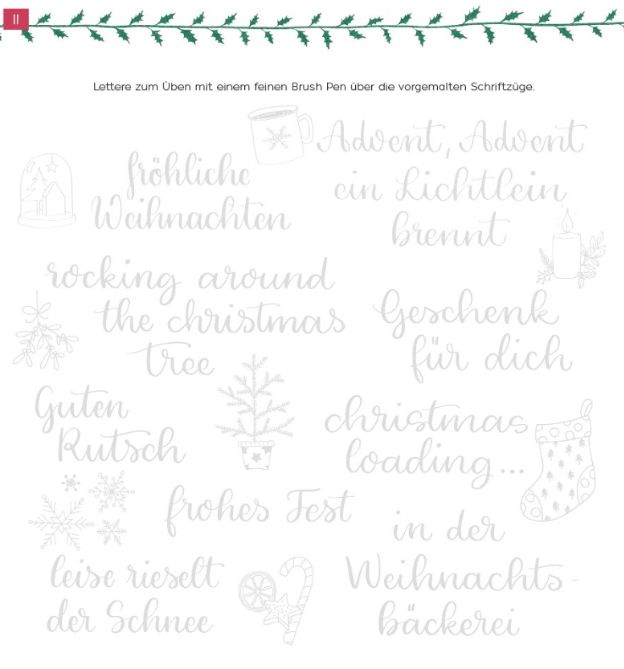 11
Lettere zum Üben mit einem feinen Brush Pen über die vorgemalten Schriftzüge.
fröhliche
Weihnachten
Advent, Advent
ein Lichtlein
brennt
rocking around
the christmas
tree
Geschenk
für dich
Guten
Rutsch
christmas
loading...
frohes Fest
in der
Weihnachts-
bäckerei
leise rieselt
der Schnee